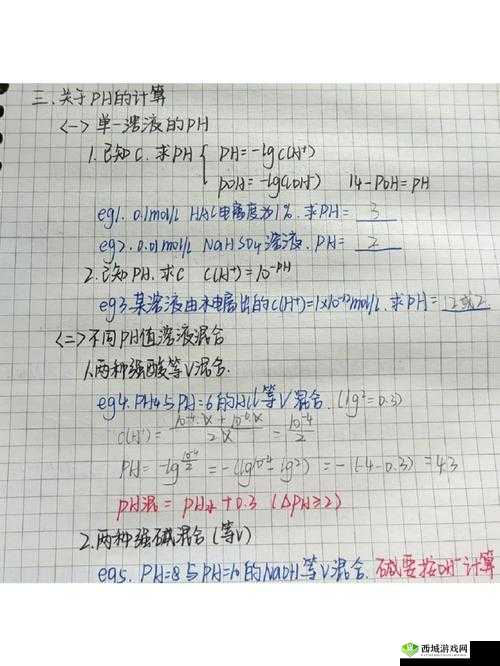 三.关于PH的计算
<一>单一溶液的PH
1.已知C.求PH { PH=-lgc(H⁺)
POH=-lgc(OH⁻) 14-POH=PH
eg1. 0.1mol/L HAc电离度为1%.求PH= 3
eg2. 0.01mol/L NaHSO₄溶液. PH= 2
2.已知PH.求C C(H⁺)=10^-PH
eg3.某溶液由水电离出的c(H⁺)=1×10⁻¹²mol/L.求PH= 12或2
<二>不同PH值溶液混合
1.两种强酸等V混合.
eg4.PH=4与PH=6的HCl等V混合.(lg²=0.3)
C(H⁺)= 10⁻⁴·X+10⁻⁶·X / 2X = 10⁻⁴ / 2
PH=-lg 10⁻⁴/2 =-(lg10⁻⁴-lg²)=-(-4-0.3)=4.3
PH混=PH小+0.3 (ΔPH≥2)
2.两种强碱混合(等V)
eg5. PH=8与PH=10的NaOH等V混合.碱要按OH⁻计算
西城游戏网